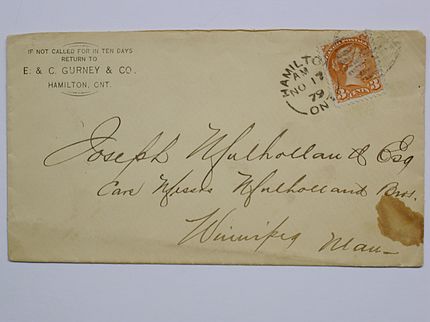 IF NOT CALLED FOR IN TEN DAYS
RETURN TO
E. & C. GURNEY & CO.
HAMILTON, ONT.
HAMILTON
AM
NO 17
79
ONT
3 CENTS 3
Joseph Mulholland Esq
Care Messrs Mulholland Bros.
Winnipeg Man